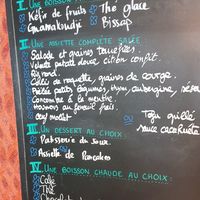 I UNE BOISSON
Kéfir de fruits Thé glacé
Gnamakoudji Bissap
II UNE ASSIETTE COMPLÈTE SALÉE
Salade de graines
Velouté patate douce citron confit.
Riz rond
Cake au roquette, graines de courge.
Poêlée petits légumes, thym, aubergine,
Concombre à la menthe.
Houmous au fenouil frais.
oeuf mollet ou Tofu grillé
sauce cacahuète
III UN DESSERT AU CHOIX:
Patisserie du Jour.
OU
Assiette de Pancakes
IV UNE BOISSON CHAUDE AU CHOIX:
Café
Thé